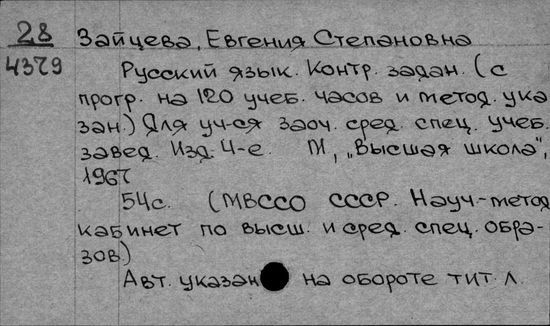 28 Зайцева, Евгения Степановна
4379 Русский язык. Контр. задан. (с
прогр. на 120 учеб. часов и метод. ука
зан.) Для уч-ся заоч. сред. спец. учеб.
завед. Изд. 4-е. М, „Высшая школа",
1967
54с. (МВССО СССР. Науч-метод
кабинет по высш. и сред. спец. обра-
зов.)
Авт. указан на обороте тит. л.